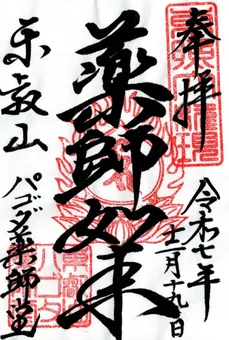 奉拝
令和七年
十二月十九日
薬師如来
示教山
パゴダ薬師堂